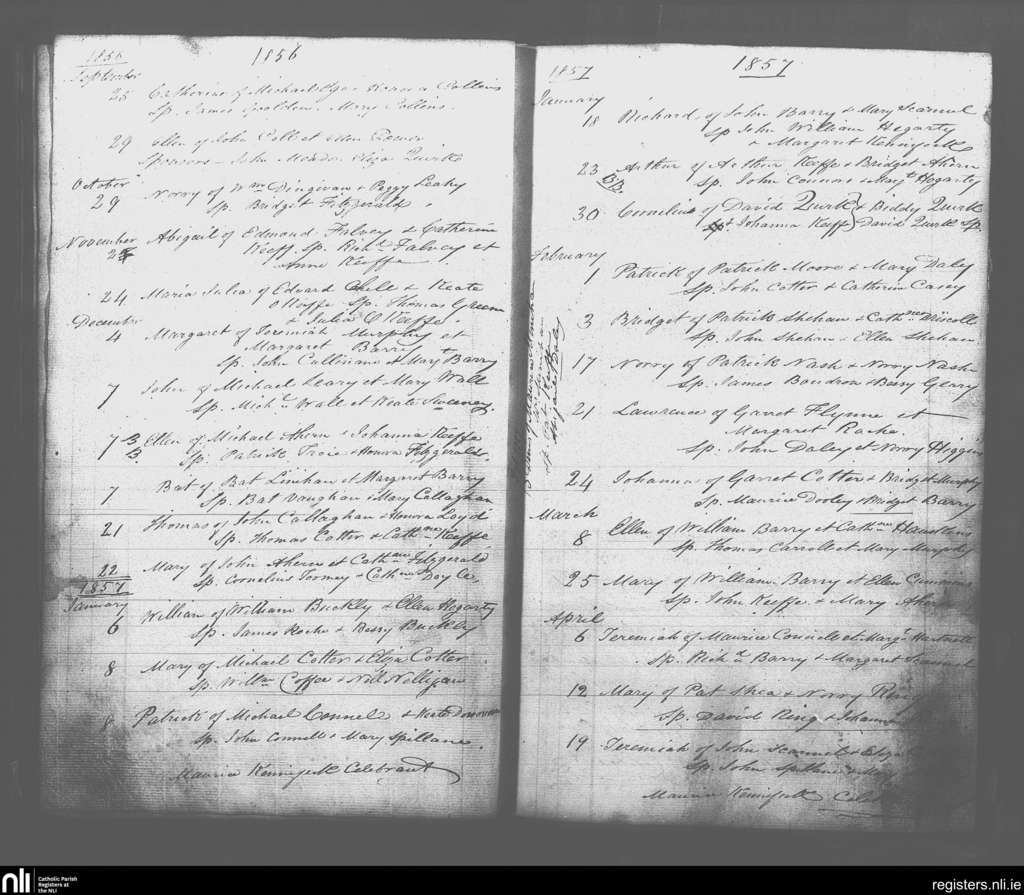 1856
1856
September
25 Catherine of Michael Ega & Honora Collins
Sp. James Geolden. Mary Collins.
29 Ellen of John Coll et Ellen
Sponsors - John Meade. Eliza Quirk
October
29 Norry of Wm Dinqivan & Peggy Leahy
Sp. Bridget Fitzgerald.
November
Abigail of Edmond Falvey & Catherine
Keeff Sp. Falvey et
Anne Keeffe
24 Maria Julia of Edward & Keate
O Keyffe Sp. Thomas
& Julia O Keeffe.
December
4 Margaret of Jeremiah Murphy et
Margaret Barry
Sp. John Callinane et Mary Barry
7 John of Michael Leary et Mary Wall
Sp. Michl Wall et Keate Sweeney.
7 B.B. Ellen of Michael Ahern & Johanna Keeffe
Sp. Patrick & Honora Fitzgerald.
7 Bat of Bat Linehan et Margaret Barry
Sp. Bat Vaughan & Mary Callaghan
21 Thomas of John Callaghan & Honora Loyd
Sp. Thomas Cotter & Cathne Keeffe
22 Mary of John Ahern et Cathne Fitzgerald
Sp. Cornelius Toomey & Cathne Doyle
1857
January
6 William of William Buckly & Ellen Hegarty
Sp. James Roche & Bessy Buckley
8 Mary of Michael Cotter & Eliza Cotter
Sp. Willm Coffee & Nell Nelligan
8 Patrick of Michael Connell & Keate
Sp. John Connell & Mary Spillane.
Maurice Kenifeck Celebrant
1857
1857
January
18 Richard of John Barry & Mary Scannel
Sp John William Hegarty
& Margaret Kenifeck
23 B.B. Arthur of Arthur Keeffe & Bridget Ahern
Sp. John Connors & Mary Hogarty
30 Cornelius of David Quirk & Biddy Quirk
Johanna Keeff } David Quirk Sp.
February
1 Patrick of Patrick Moore & Mary Daly
Sp. John Cotter & Catherin Casey
3 Bridget of Patrick Shehan & Cathne Driscoll
Sp. John Shehan & Ellen Shehan
17 Norry of Patrick Nash & Norry Nash
Sp. James Bondron & Bessy Gerry
21 Lawrence of Garret Flynne et
Margaret Roche.
Sp. John Daley et Norry Higgins
24 Johanna of Garret Cotter & Bridgt Murphy
Sp. Maurice Dooley & Bridget Barry
March
8 Ellen of William Barry et Cathne
Sp. Thomas Carroll et Mary Murphy
25 Mary of William Barry et Ellen Cummins
Sp. John Keeffe & Mary Ahern
April
6 Jeremiah of Maurice Connell et Margt Hartnett
Sp. Richd Barry & Margaret Scannel
12 Mary of Pat Shea & Norry
Sp. David Ring & Johanna
19 Jeremiah of John Scannel &
Sp. John Spillane &
Maurice Kenifeck
of Maurice
Sp. Pat Keeffe
Margaret Daley
nli
Catholic Parish
Registers at
the NLI
registers.nli.ie